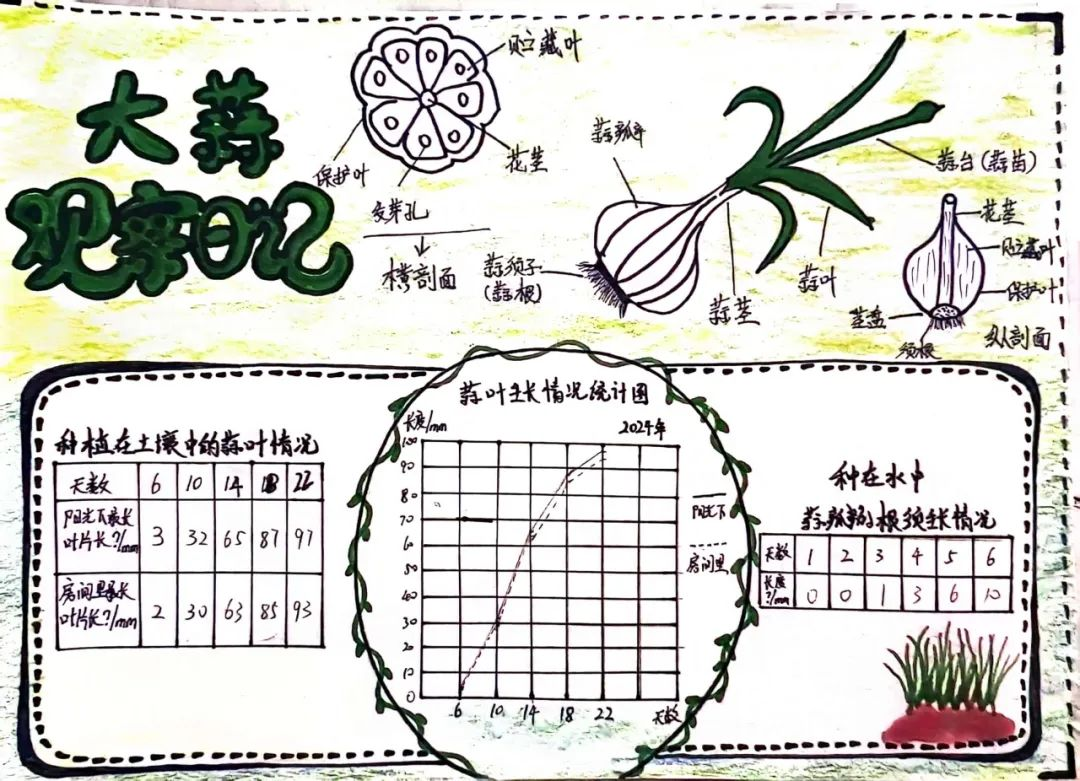 大蒜
观察日记
贮藏叶
保护叶
花茎
发芽孔
横剖面
蒜瓣
蒜须子
(蒜根)
蒜茎
蒜叶
蒜台(蒜苗)
花茎
贮藏叶
保护叶
茎盘
须根
纵剖面
种植在土壤中的蒜叶情况
天数 6 10 14 18 22
阳光下最长
叶片长?/mm 3 32 65 87 97
房间里最长
叶片长?/mm 2 30 63 85 93
蒜叶生长情况统计图
长度/mm
2024年
100
90
80
70
60
50
40
30
20
10
0
6 10 14 18 22 天数
阳光下
房间里
种在水中
蒜瓣的根须生长情况
天数 1 2 3 4 5 6
长度
?/mm 0 0 1 3 6 10